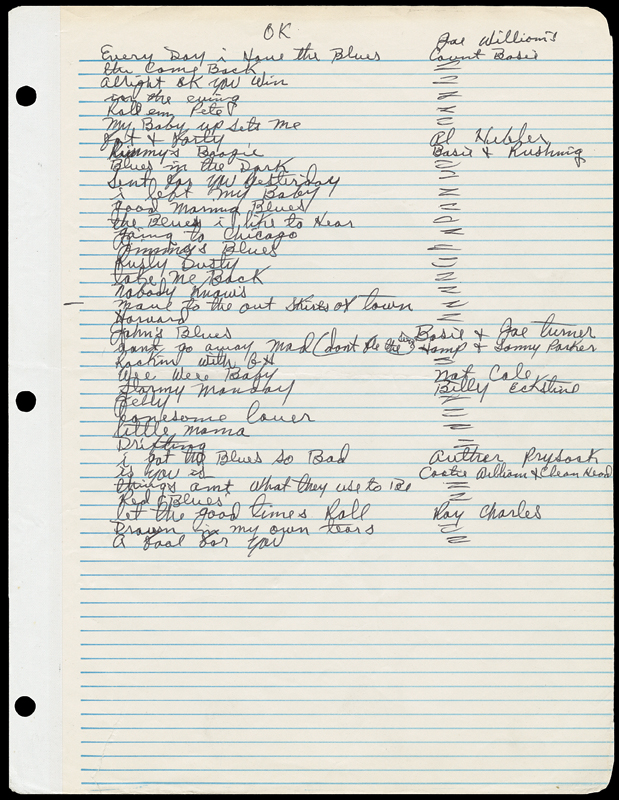 OK
Joe William's
Every Day i Have the Blues Count Basie
the Come Back "
alright OK you Win "
in the evening "
Roll em Pete "
My Baby up sets me "
fort & Forty Al Hibbler
Jimmy's Boogie Basie & Rushnig
Blues in the Dark "
Sent for you yesterday "
i left my Baby "
Good Morning Blues "
the Blues i like to Hear "
going to Chicago "
Jimmy's Blues "
Rusty Dusty "
take Me Back "
Nobody Knows "
move to the out skirts of town "
Harvard "
John's Blues Basie & Joe Turner
dont go away Mad Hamp & Sonny Parker
Rockin with "
are were Baby Nat Cole
Stormy Monday Billy Eckstine
Jelly "
lonesome lover "
little mama "
Drifting "
i got the Blues so Bad Auther Prysock
is you is Cootie William & Clean Head
things aint what they use to Be "
Red Blues "
let the good times Roll Ray Charles
Drown in my own tears "
A fool for you "